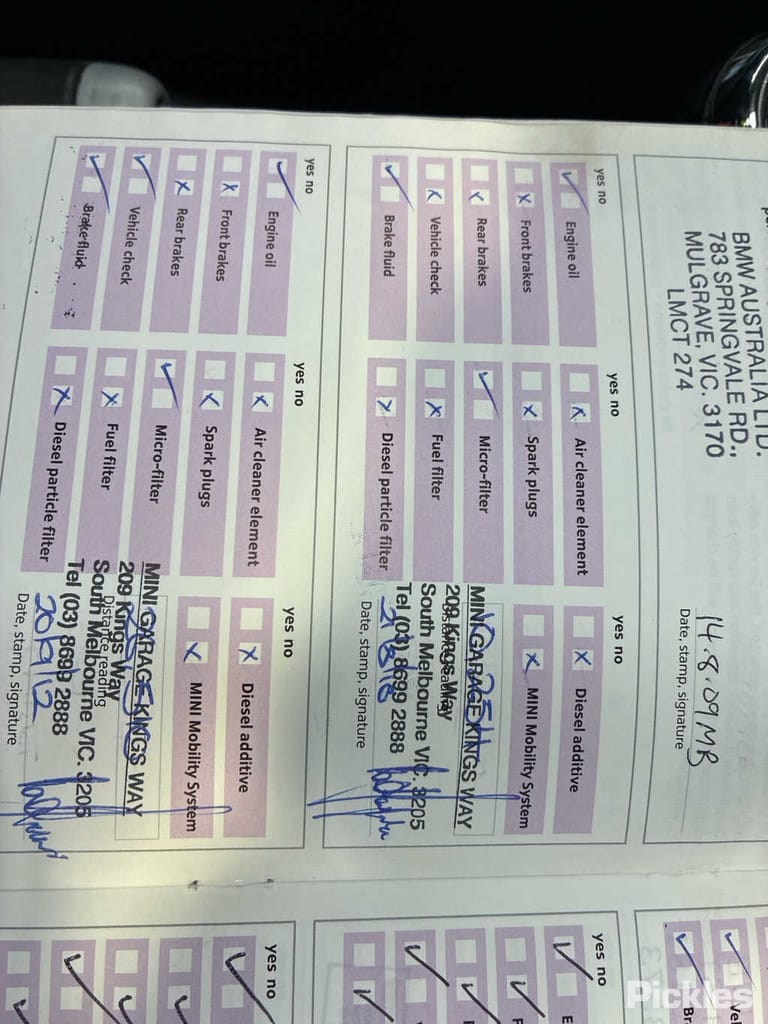 BMW AUSTRALIA LTD.
783 SPRINGVALE RD.,
MULGRAVE, VIC. 3170
LMCT 274
14.8.09 MB
Date, stamp, signature
yes no
Engine oil
Front brakes
Rear brakes
Vehicle check
Brake fluid
yes no
Air cleaner element
Spark plugs
Micro-filter
Fuel filter
Diesel particle filter
yes no
Diesel additive
MINI Mobility System
MINI GARAGE KINGS WAY
209 Kings Way
South Melbourne VIC. 3205
Tel (03) 8699 2888
Date, stamp, signature
yes no
Engine oil
Front brakes
Rear brakes
Vehicle check
Brake fluid
yes no
Air cleaner element
Spark plugs
Micro-filter
Fuel filter
Diesel particle filter
yes no
Diesel additive
MINI Mobility System
MINI GARAGE KINGS WAY
209 Kings Way
Distance reading
South Melbourne VIC. 3205
Tel (03) 8699 2888
20/9/12
Date, stamp, signature
yes no
yes no
Pickles